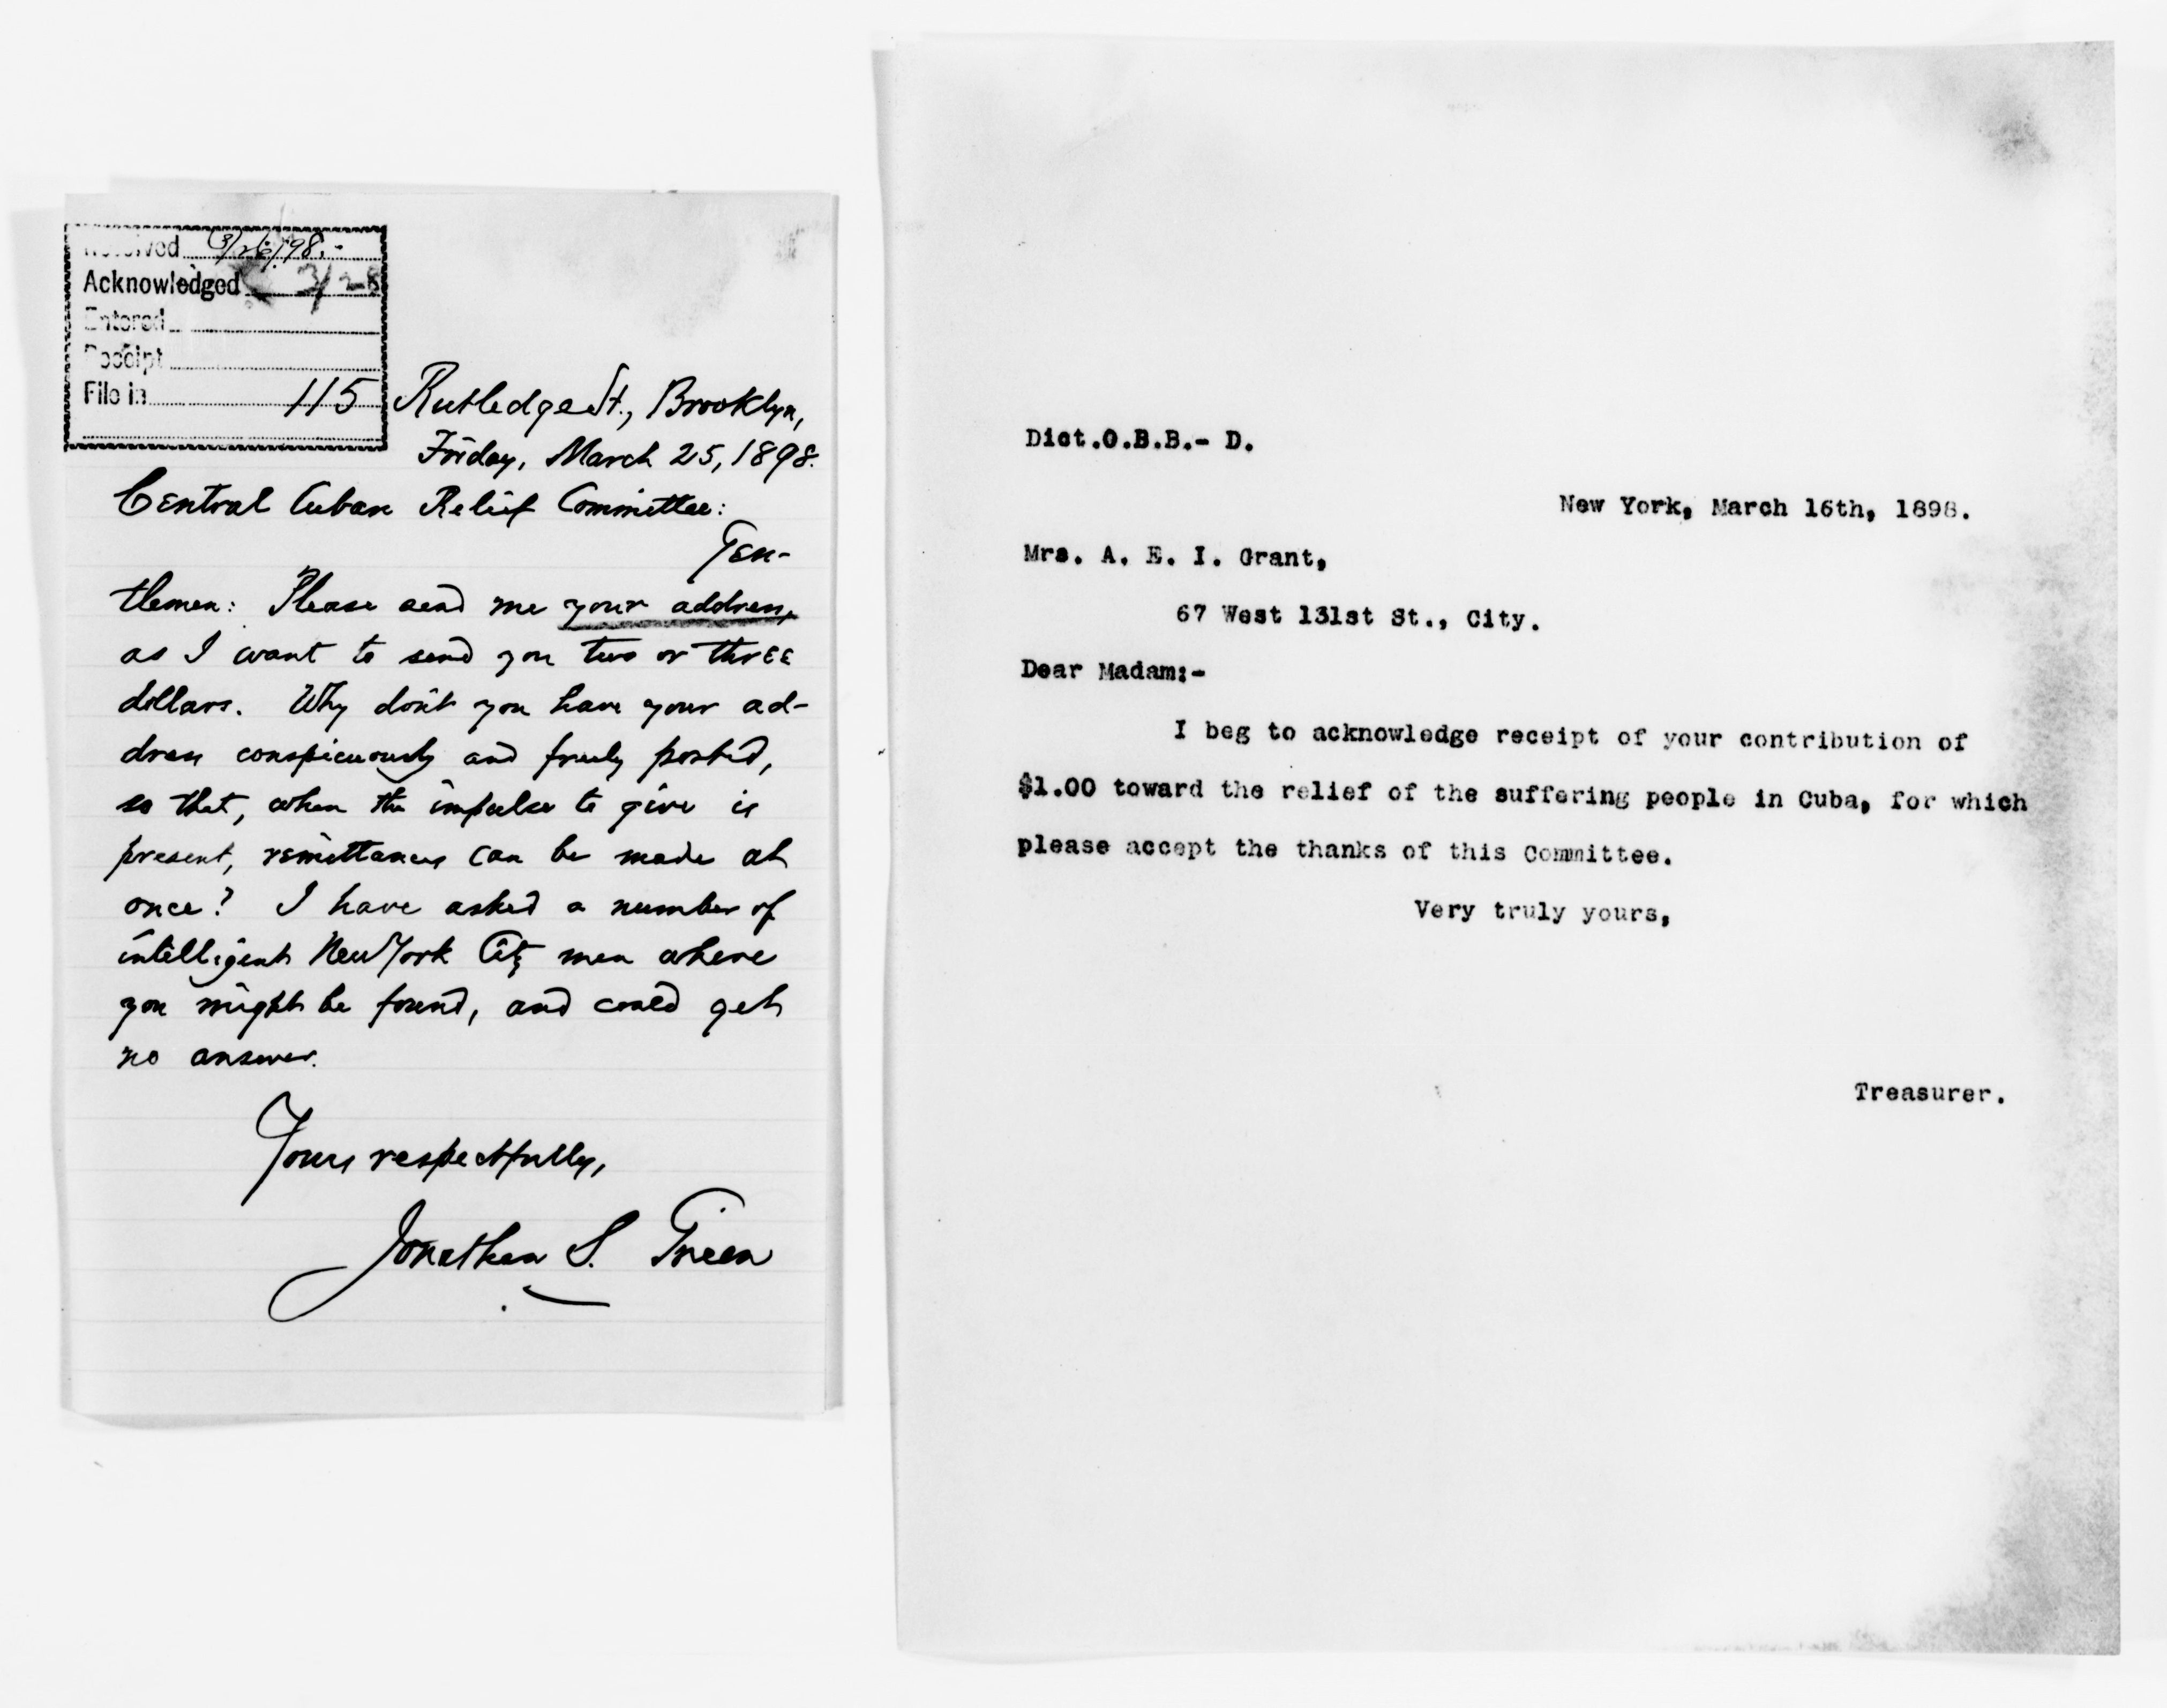 Received 3/26/98.
Acknowledged 3/28
Entered
Receipt
File in
115 Rutledge St., Brooklyn,
Friday, March 25, 1898.
Central Cuban Relief Committee:
Gen-
tlemen: Please send me your address,
as I want to send you two or three
dollars. Why don't you have your ad-
dress conspicuously and freely posted,
so that, when the impulse to give is
present, remittances can be made at
once? I have asked a number of
intelligent New York City men where
you might be found, and could get
no answer.
Yours respectfully,
Jonathan S. Green
Dict.O.B.B.- D.
New York, March 16th, 1898.
Mrs. A. E. I. Grant,
67 West 131st St., City.
Dear Madam:-
I beg to acknowledge receipt of your contribution of
$1.00 toward the relief of the suffering people in Cuba, for which
please accept the thanks of this Committee.
Very truly yours,
Treasurer.